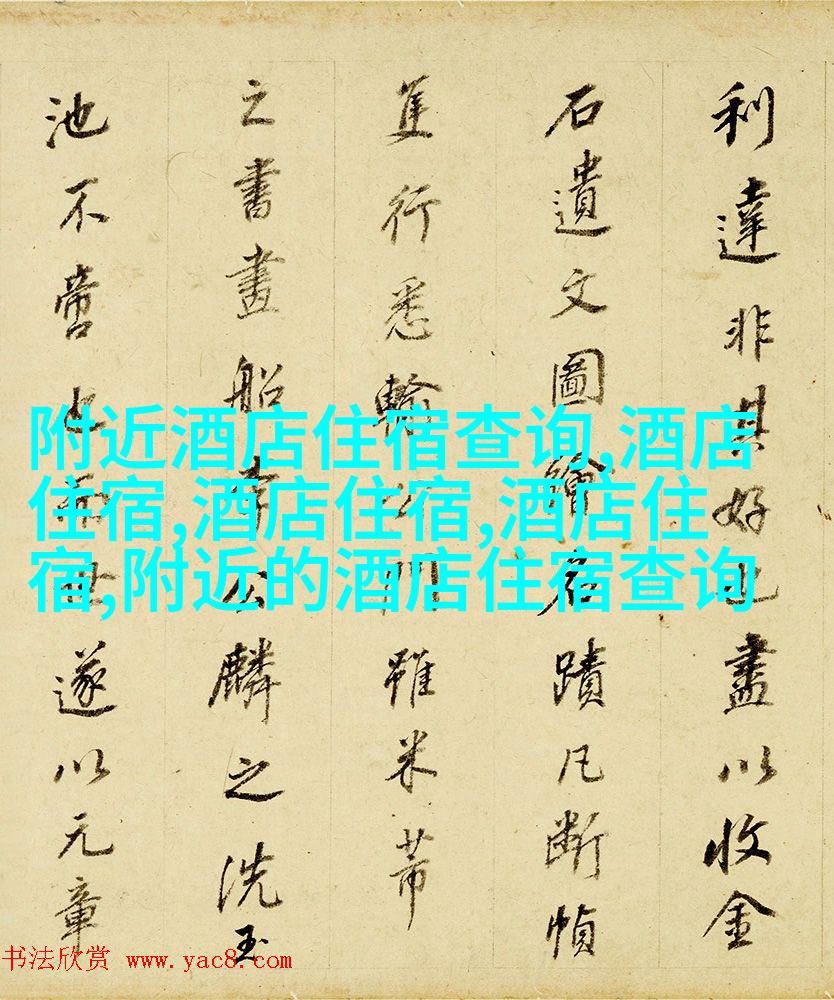 利達非其好也盡以收金
石遺文圖繪名蹟凡斷幀
隻行悉輸公門雖米芾
之書畫船李公麟之洗玉
池不啻也而世遂以元章
附近酒店住宿查询,酒店
住宿,酒店住宿,酒店住
宿,附近的酒店住宿查询
书法欣赏 www.yac8.com